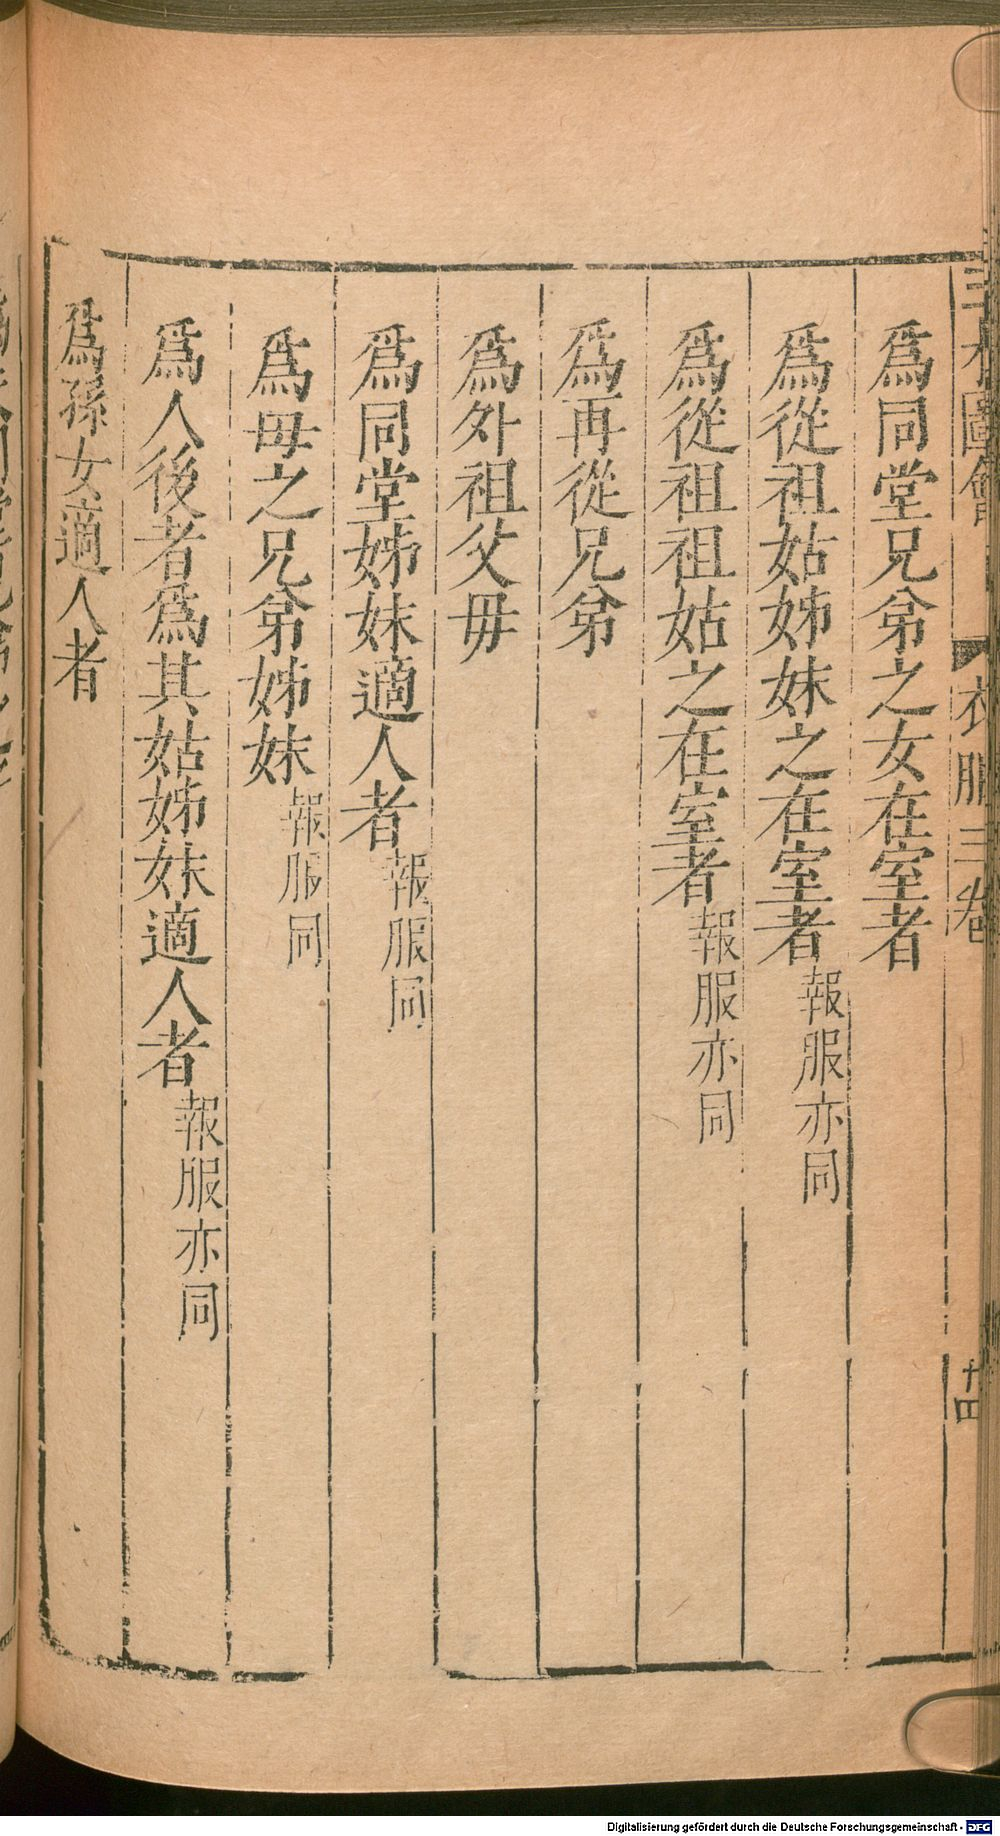 三才圖會 衣服三卷 十四
爲同堂兄弟之女在室者
爲從祖姑姊妹之在室者報服亦同
爲從祖祖姑之在室者報服亦同
爲再從兄弟
爲外祖父母
爲同堂姊妹適人者報服同
爲母之兄弟姊妹報服同
爲人後者爲其姑姊妹適人者報服亦同
爲孫女適人者
Digitalisierung gefördert durch die Deutsche Forschungsgemeinschaft - DFG